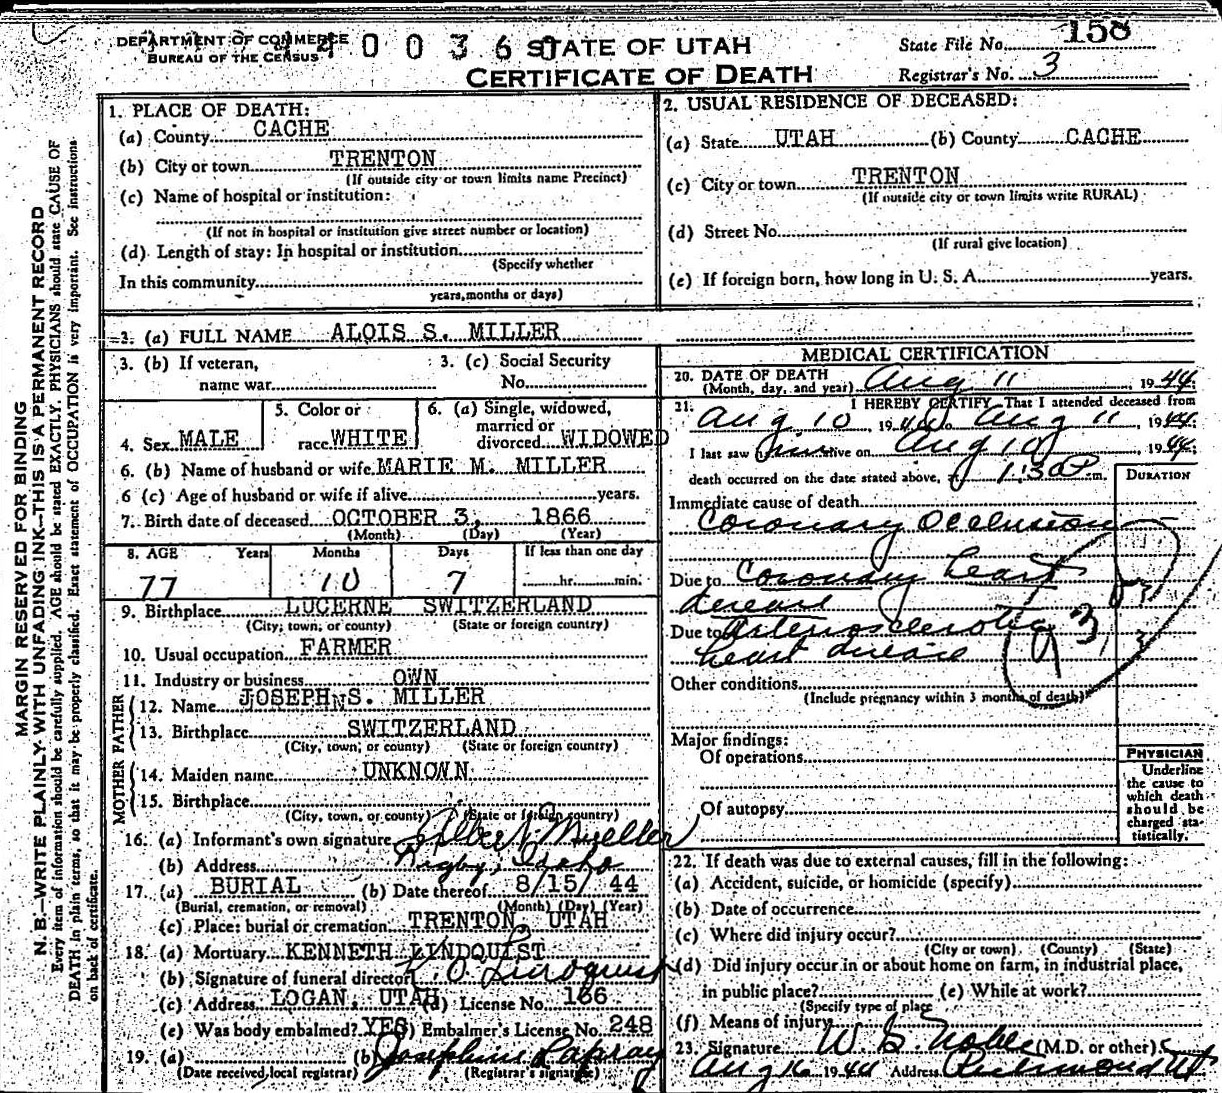 DEPARTMENT OF COMMERCE
BUREAU OF THE CENSUS
4 0 0 3 6 0
STATE OF UTAH
CERTIFICATE OF DEATH
State File No. 158
Registrar's No. 3
MARGIN RESERVED FOR BINDING
N. B.—WRITE PLAINLY WITH UNFADING INK—THIS IS A PERMANENT RECORD
Every item of information should be carefully supplied. AGE should be stated EXACTLY. PHYSICIANS should state CAUSE OF
DEATH in plain terms, so that it may be properly classified. Exact statement of OCCUPATION is very important. See instructions
on back of certificate.
1. PLACE OF DEATH:
(a) County CACHE
(b) City or town TRENTON
(If outside city or town limits name Precinct)
(c) Name of hospital or institution:
(If not in hospital or institution give street number or location)
(d) Length of stay: In hospital or institution
(Specify whether
In this community
years, months or days)
2. USUAL RESIDENCE OF DECEASED:
(a) State UTAH (b) County CACHE
(c) City or town TRENTON
(If outside city or town limits write RURAL)
(d) Street No.
(If rural give location)
(e) If foreign born, how long in U. S. A. years.
(a) FULL NAME ALOIS S. MILLER
3. (b) If veteran,
name war
3. (c) Social Security
No.
4. Sex MALE
5. Color or
race WHITE
6. (a) Single, widowed,
married or
divorced WIDOWED
6. (b) Name of husband or wife MARIE M. MILLER
6 (c) Age of husband or wife if alive years.
7. Birth date of deceased OCTOBER 3, 1866
(Month) (Day) (Year)
8. AGE Years Months Days If less than one day
77 10 7 hr. min.
9. Birthplace LUCERNE SWITZERLAND
(City, town, or county) (State or foreign country)
10. Usual occupation FARMER
11. Industry or business OWN
FATHER
12. Name JOSEPH N S. MILLER
13. Birthplace SWITZERLAND
(City, town, or county) (State or foreign country)
MOTHER
14. Maiden name UNKNOWN
15. Birthplace
(City, town, or county) (State or foreign country)
16. (a) Informant's own signature Mueller
(b) Address Rigby, Idaho
17. (a) BURIAL (b) Date thereof 8/15/ 44
(Burial, cremation, or removal) (Month) (Day) (Year)
(c) Place: burial or cremation TRENTON UTAH
18. (a) Mortuary KENNETH LINDQUIST
(b) Signature of funeral director K. O. Lindquist
(c) Address LOGAN, UTAH (d) License No. 166
(e) Was body embalmed? YES (f) Embalmer's License No. 248
19. (a) (b) Josephine
(Date received local registrar) (Registrar's signature)
MEDICAL CERTIFICATION
20. DATE OF DEATH
(Month, day, and year) Aug 11, 1944;
21. I HEREBY CERTIFY That I attended deceased from
Aug 10, 1944 to Aug 11, 1944;
I last saw him alive on Aug 10, 1944;
death occurred on the date stated above, at 1:30 P m.
DURATION
Immediate cause of death
Coronary Occlusion
Due to Coronary heart
disease
Due to Arteriosclerotic
heart disease
Other conditions
(Include pregnancy within 3 months of death)
Major findings:
Of operations
Of autopsy
PHYSICIAN
Underline
the cause to
which death
should be
charged sta-
tistically.
22. If death was due to external causes, fill in the following:
(a) Accident, suicide, or homicide (specify)
(b) Date of occurrence
(c) Where did injury occur?
(City or town) (County) (State)
(d) Did injury occur in or about home on farm, in industrial place,
in public place? (e) While at work?
(Specify type of place
(f) Means of injury
23. Signature W. G. Noble (M.D. or other)
Aug 16 1944 Address Richmond Ut